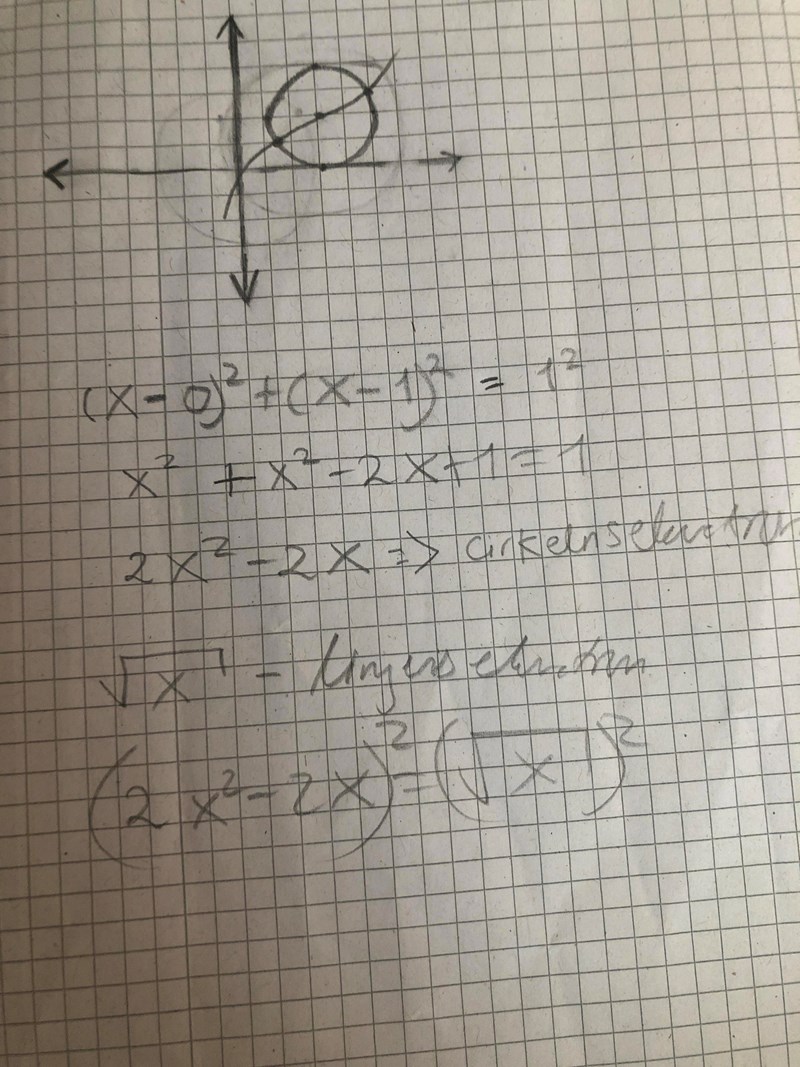 (x-0)² + (x-1)² = 1²
x² + x² - 2x + 1 = 1
2x² - 2x => cirkelns ekvation
√x - linjens ekvation
(2x² - 2x)² = (√x)²